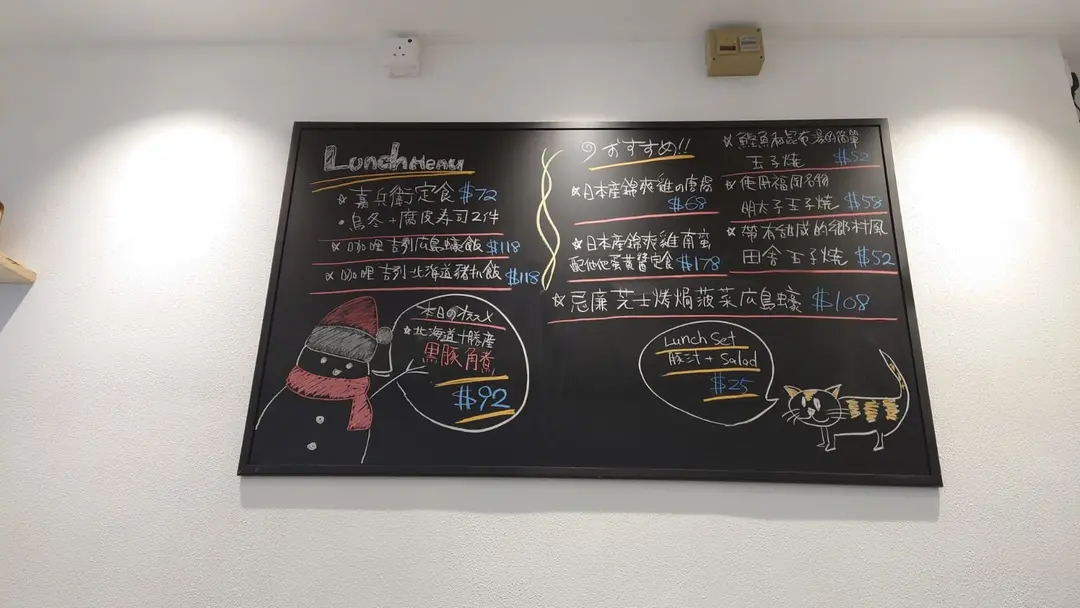 Lunch Menu
☆ 嘉兵衛定食 $72
・烏冬+腐皮寿司2件
☆ 咖哩吉列広島蠔飯 $118
☆ 咖哩吉列北海道豬扒飯 $118
本日のオススメ
☆北海道十勝産
黒豚角煮
$92
おすすめ!!
☆日本産錦爽雞の唐揚
$68
☆日本産錦爽雞南蛮
配他他蛋黄醬定食 $178
☆ 鰹魚和昆布湯的簡單
玉子焼 $52
☆ 使用福岡名物
明太子玉子焼 $58
☆ 帶本組成的鄉村風
田舎玉子焼 $52
☆ 忌廉芝士烤焗菠菜広島蠔 $108
Lunch Set
豚汁 + Salad
$25